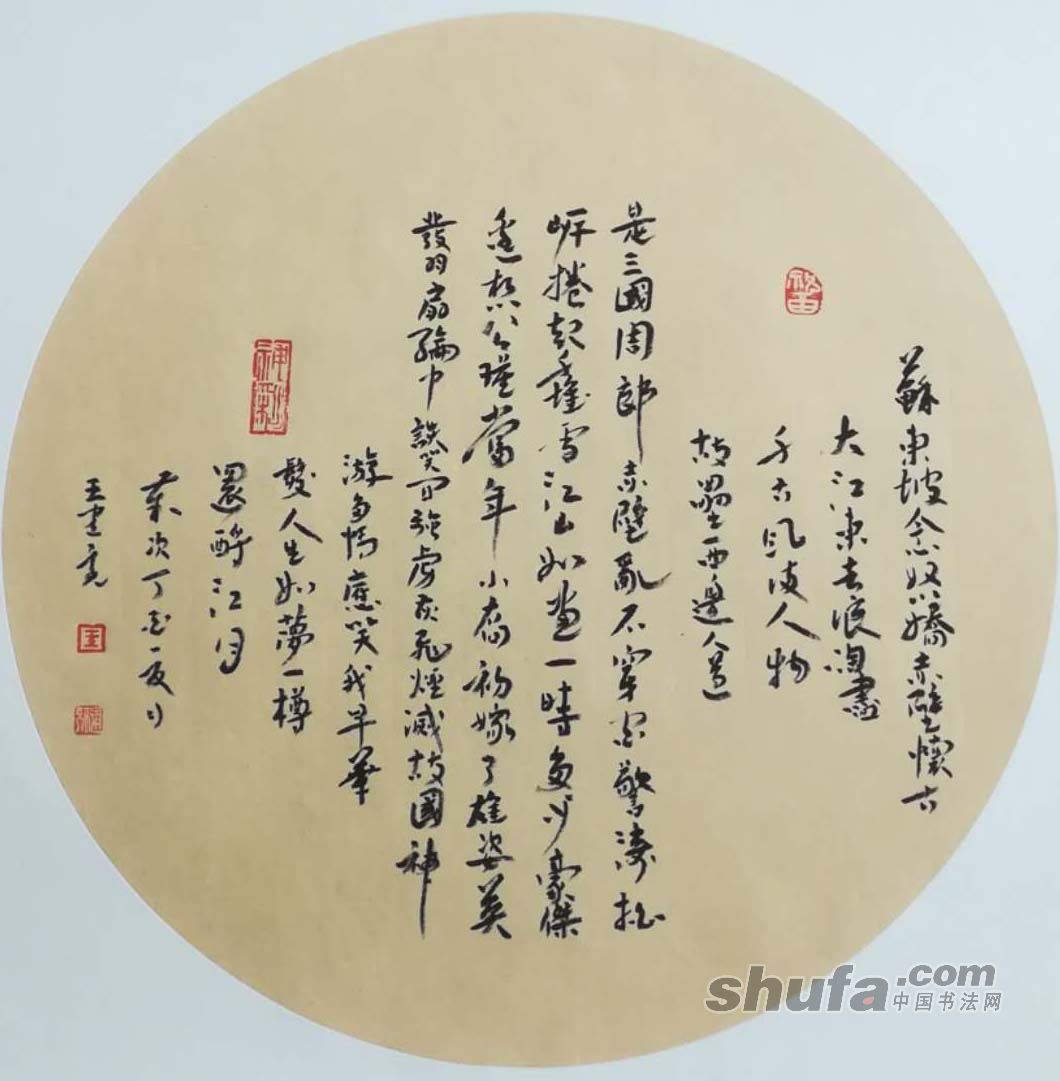 蘇東坡念奴嬌赤壁懷古
大江東去浪淘盡
千古風流人物
故壘西邊人道
是三國周郎赤壁亂石穿空驚濤拍
岸捲起千堆雪江山如畫一時多少豪傑
遙想公瑾當年小喬初嫁了雄姿英
發羽扇綸巾談笑間強虜灰飛煙滅故國神
游多情應笑我早華
髮人生如夢一樽
還酹江月
歲次丁酉夏月
王亮
shufa.com
中国书法网